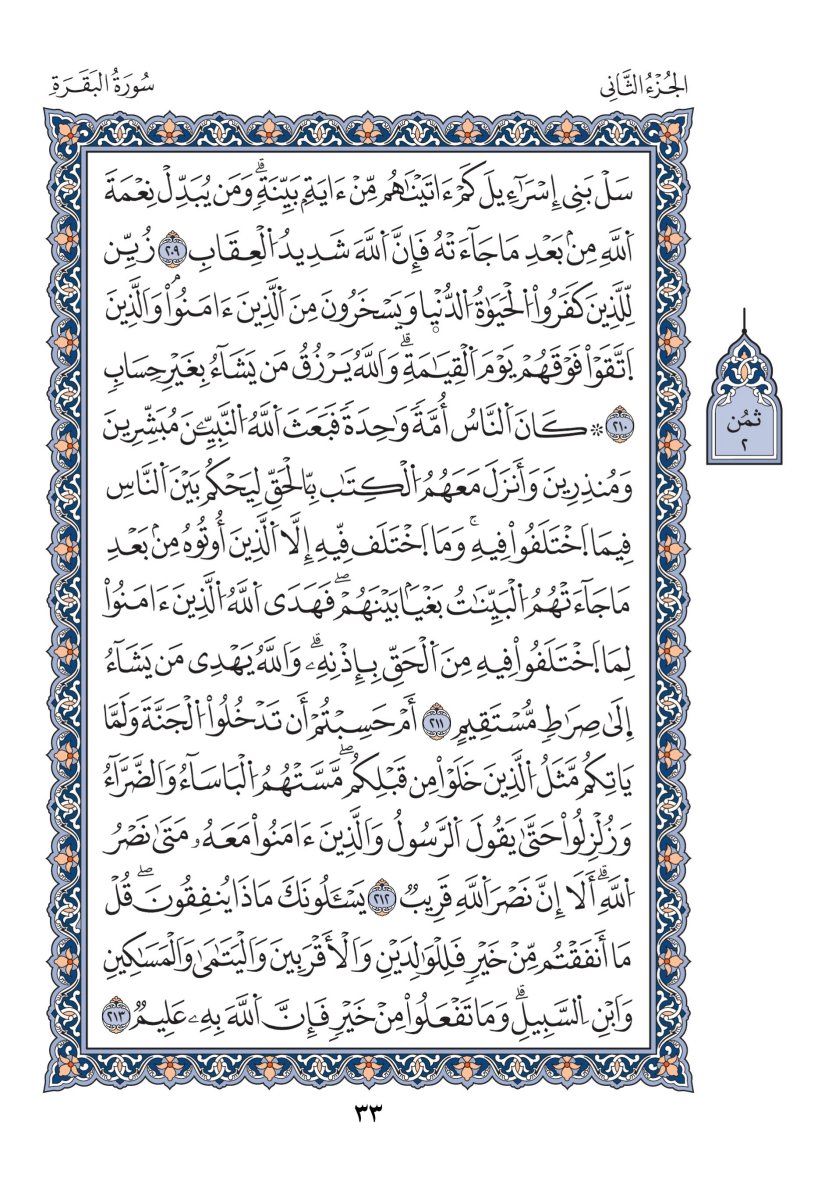 الجُزْءُ الثَّانِي
سُورَةُ البَقَرَةِ
سَلْ بَنِي إِسْرَآءِيلَ كَمْ ءَاتَيْنَٰهُم مِّنْ ءَايَةِۭ بَيِّنَةٖۗ وَمَن يُبَدِّل نِّعْمَةَ
اَ۬للَّهِ مِنۢ بَعْدِ مَا جَآءَتْهُ فَإِنَّ اَ۬للَّهَ شَدِيدُ اُ۬لْعِقَابِ ٢٠٩ زُيِّن
لِّلَّذِينَ كَفَرُواْ اُ۬لْحَيَوٰةُ اُ۬لدُّنْيا وَيَسْخَرُونَ مِنَ اَ۬لَّذِينَ ءَامَنُواْۘ وَالَّذِينَ
اَ۪تَّقَوْاْ فَوْقَهُمْ يَوْمَ اَ۬لْقِيَٰمَةِۗ وَاللَّهُ يَرْزُقُ مَن يَشَآءُ بِغَيْرِ حِسَابٖ
٢١٠ ۞ كَانَ اَ۬لنَّاسُ أُمَّةٗ وَٰحِدَةٗ فَبَعَثَ اَ۬للَّهُ اُ۬لنَّبِيِّـۧنَ مُبَشِّرِينَ
وَمُنذِرِينَ وَأَنزَلَ مَعَهُمُ اُ۬لْكِتَٰب بِّالْحَقِّ لِيَحْكُم بَيْنَ اَ۬لنَّاسِ
فِيمَا اَ۪خْتَلَفُواْ فِيهِۚ وَمَا اَ۪خْتَلَف فِّيهِ إِلَّا اَ۬لَّذِينَ أُوتُوهُ مِنۢ بَعْدِ
مَا جَآءَتْهُمُ اُ۬لْبَيِّنَٰتُ بَغْيَۢا بَيْنَهُمْۖ فَهَدَى اَ۬للَّهُ اُ۬لَّذِينَ ءَامَنُواْ
لِمَا اَ۪خْتَلَفُواْ فِيهِ مِنَ اَ۬لْحَقِّ بِإِذْنِهِۦۗ وَاللَّهُ يَهْدِي مَن يَشَآءُ
إِلَىٰ صِرَٰطٖ مُّسْتَقِيمٍ ٢١١ أَمْ حَسِبْتُمْ أَن تَدْخُلُواْ اُ۬لْجَنَّةَ وَلَمَّا
يَاتِكُم مَّثَلُ اُ۬لَّذِينَ خَلَوْاْ مِن قَبْلِكُمۖ مَّسَّتْهُمُ اُ۬لْبَاسَآءُ وَالضَّرَّآءُ
وَزُلْزِلُواْ حَتَّىٰ يَقُولَ اَ۬لرَّسُولُ وَالَّذِينَ ءَامَنُواْ مَعَهُۥ مَتَىٰ نَصْرُ
اُ۬للَّهِۗ أَلَا إِنَّ نَصْرَ اَ۬للَّهِ قَرِيبٞ ٢١٢ يَسْـَٔلُونَكَ مَاذَا يُنفِقُونَۖ قُلْ
مَا أَنفَقْتُم مِّنْ خَيْرٖ فَلِلْوَٰلِدَيْنِ وَالْأَقْرَبِينَ وَالْيَتَٰمَىٰ وَالْمَسَٰكِينِ
وَابْنِ اِ۬لسَّبِيلِۗ وَمَا تَفْعَلُواْ مِنْ خَيْرٖ فَإِنَّ اَ۬للَّهَ بِهِۦ عَلِيمٞ ٢١٣
ثُمُن
٢
٣٣